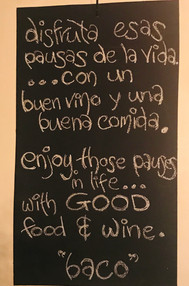 disfruta esas
pausas de la vida.
...con un
buen vino y una
buena comida.
enjoy those pauses
in life...
with GOOD
food & wine.
"baco"